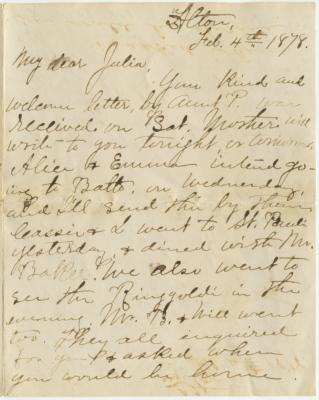 Alton,
Feb. 4th 1878.
My dear Julia,
Your kind and
welcome letter, by Aunt P. was
received on Sat. Mother will
write to you tonight, or tomorrow.
Alice & Emma intend go-
ing to Balto. on Wednesday,
and I'll send this by them.
Cassie & I went to St. Paul's
yesterday & dined with Mr.
Baker. We also went to
see the Ringgolds in the
evening. Mr. B. & Will went
too. They all inquired
for you & asked when
you would be home.